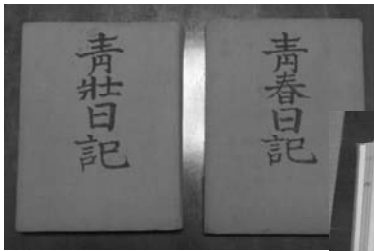 青壯日記
青春日記